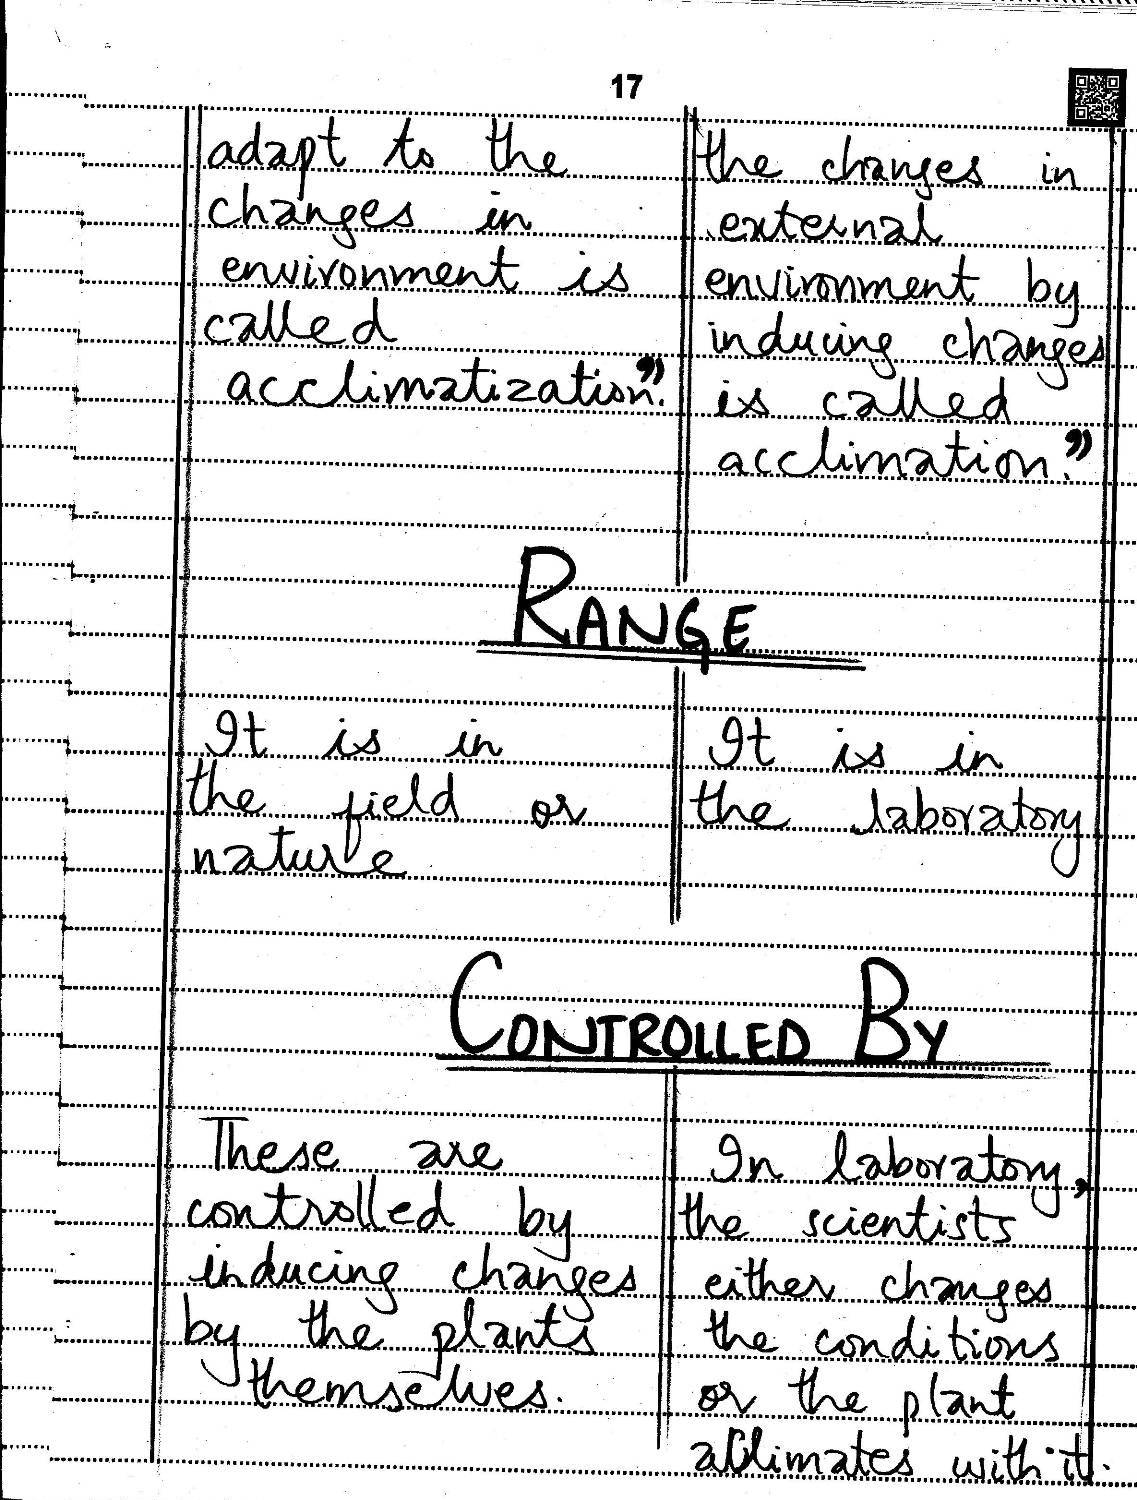 17
adapt to the
changes in
environment is
called
acclimatization."
the changes in
external
environment by
inducing changes
is called
acclimation."
RANGE
It is in
the field or
nature
It is in
the laboratory
CONTROLLED BY
These are
controlled by
inducing changes
by the plants
themselves.
In laboratory,
the scientists
either changes
the conditions
or the plant
acclimates with it.